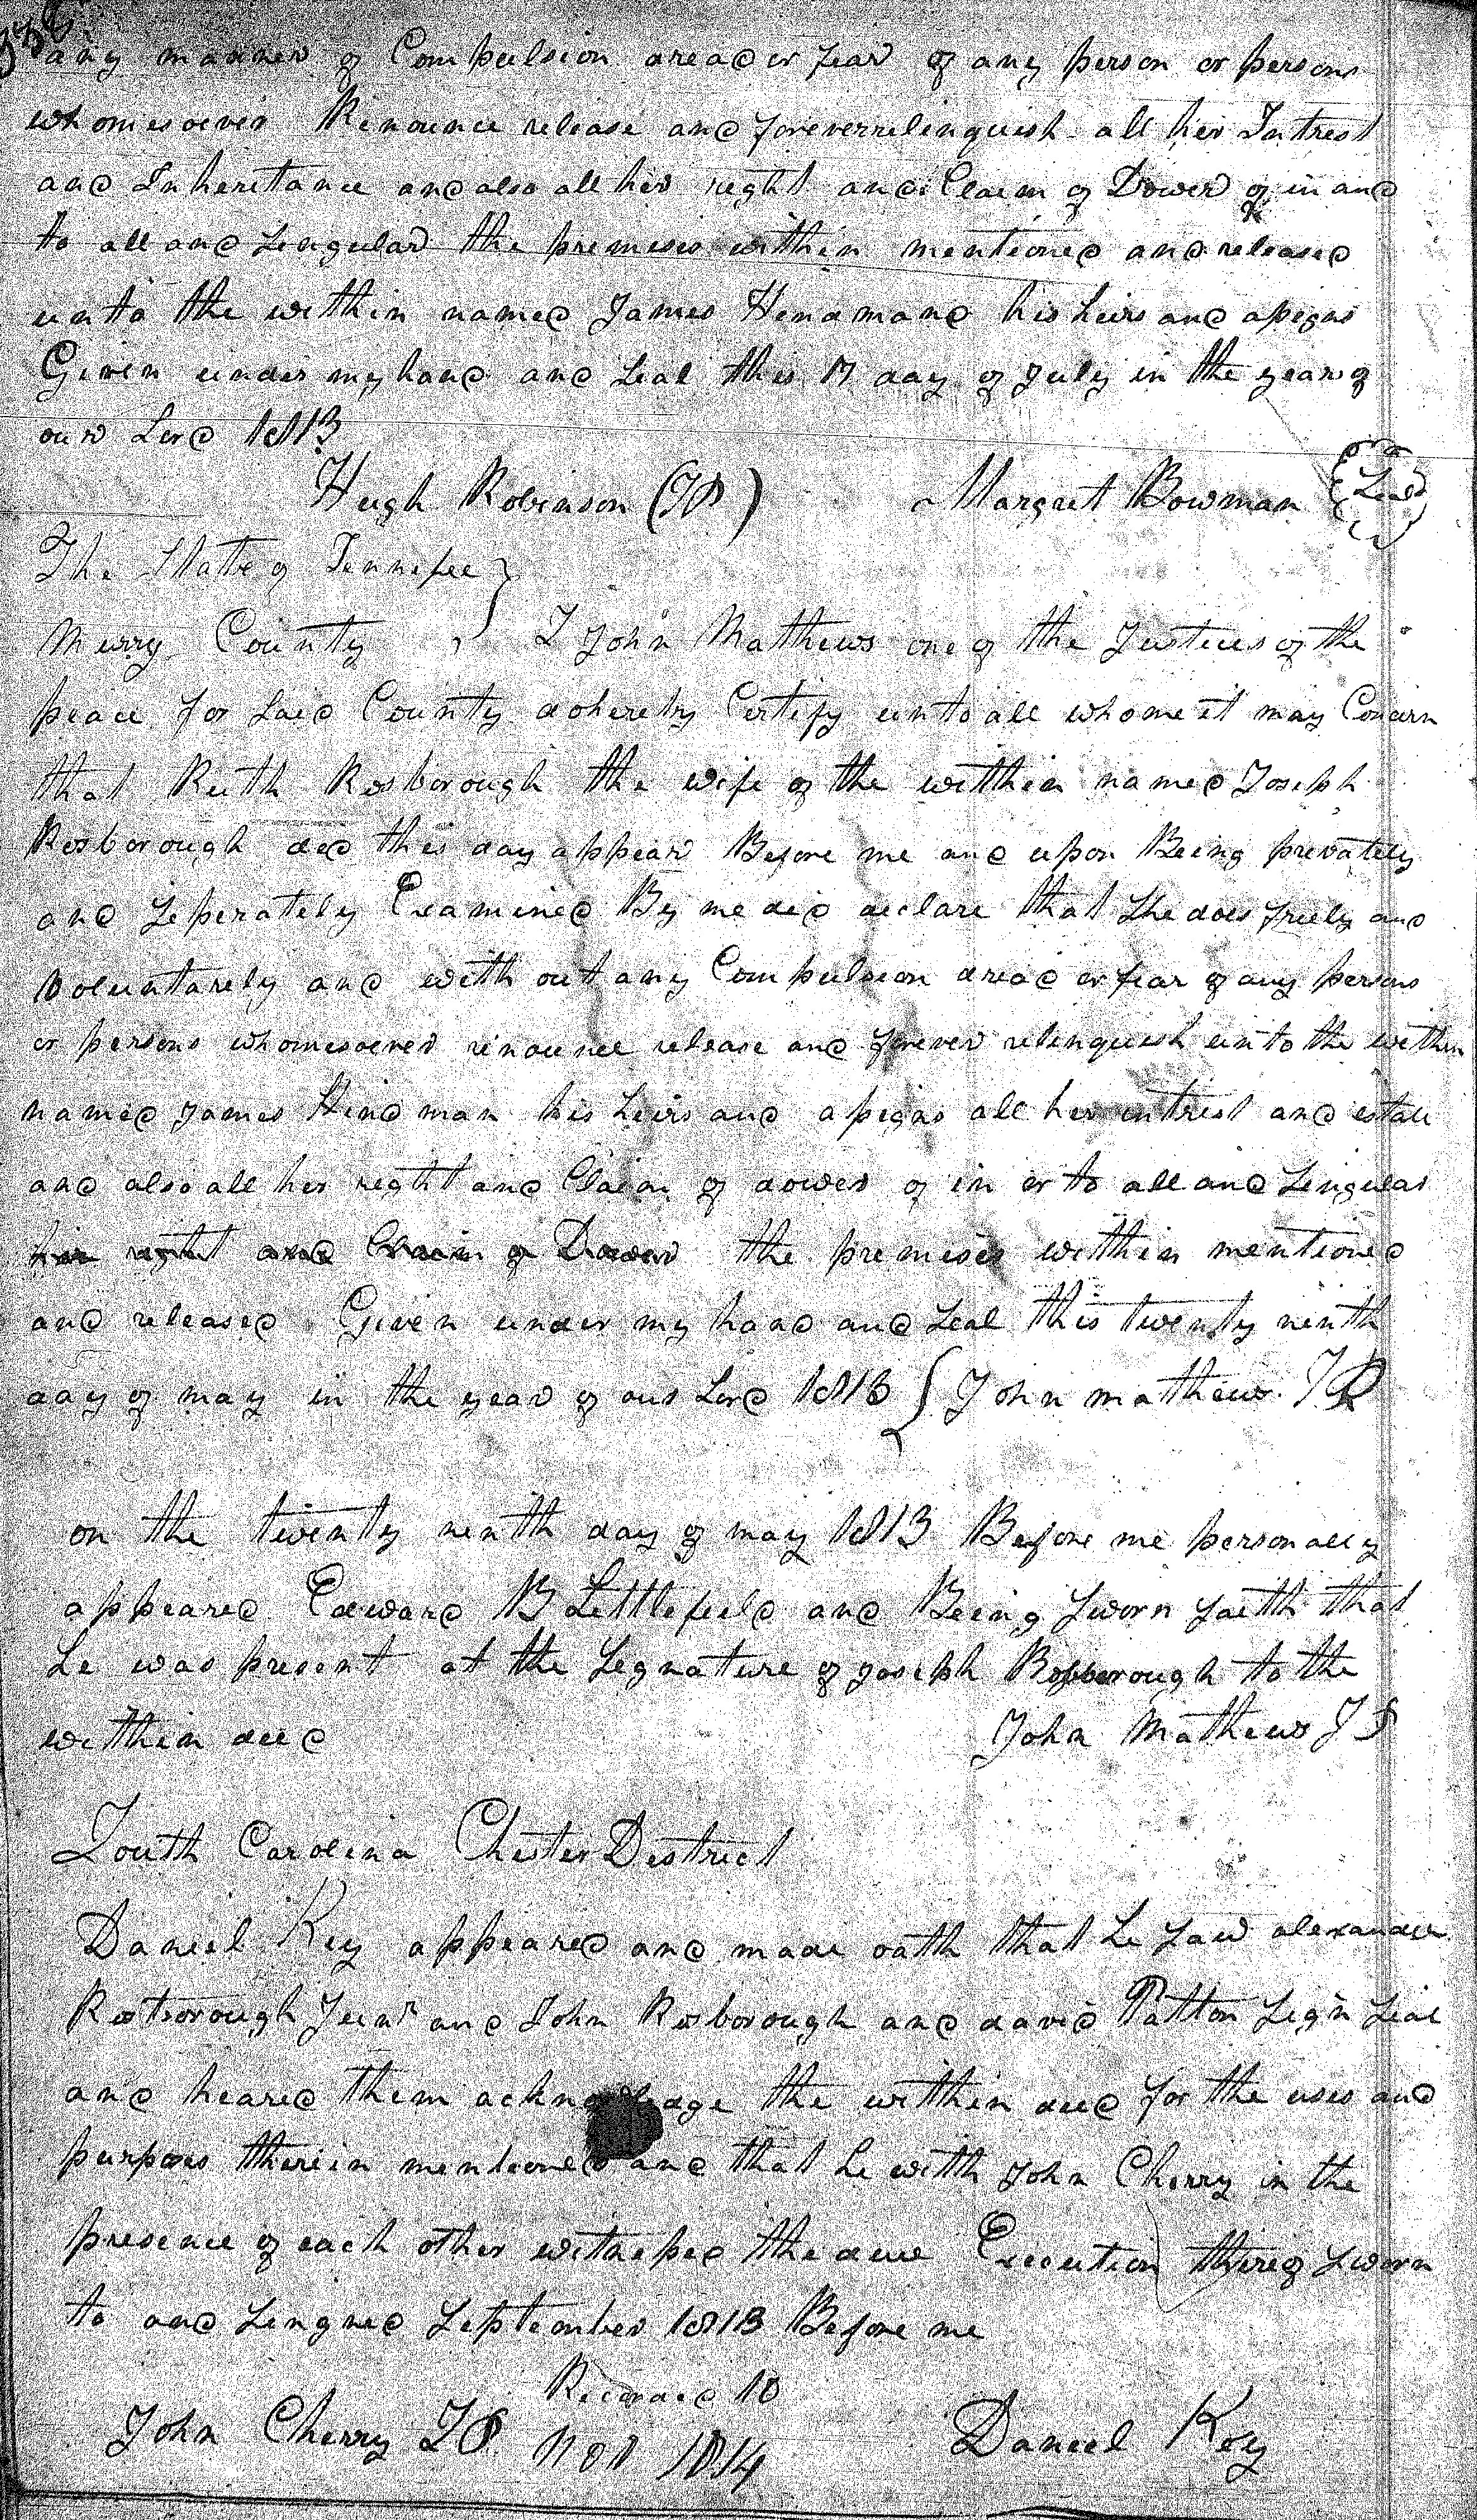 any manner of Compulsion dread or fear of any person or persons
whomesoever Renounce release and foreverrelinquish all her Intrest
and Inheretance and also all her right and Claim of Dower of in and
to all and Singular the premises within mentioned and released
unto the within named James Hendmand his heirs and assigns
Given under my hand and Seal this 17 day of July in the year of
our Lord 1813
Hugh Robinson (JP) Margret Bowman Seal
The State of Tennessee
Murry County I John Mathews one of the Justices of the
peace for Said County do hereby Certify unto all whome it may Concern
that Ruth Rosborough the wife of the within named Joseph
Rosborough did this day appear Before me and upon Being privately
and Seperately Examined By me did declare that She does freely and
voluntarely and with out any Compulsion dread or fear of any persons
or persons whomesoever renounce release and forever relinquish unto the within
named James Hindman his heirs and assigns all her intrest and estate
and also all her right and Claim of dower of in or to all and Singular
her right and Claim of Dower the premises within mentioned
and released Given under my hand and Seal this twenty ninth
day of may in the year of our Lord 1813 John mathews JP
on the twenty ninth day of may 1813 Before me personally
appeared Edward B Littlefield and Being Sworn saith that
he was present at the Segnature of Joseph Rossborough to the
within deed John Mathews JP
South Carolina Chester District
Daniel Key appeared and made oath that he Saw alexander
Rosborough Junr and John Rosborough and david Patton Sign Seal
and heared them acknowledge the within deed for the uses and
purposes therein mentioned and that he with John Cherry in the
presence of each other witnessed the due Execution thereof Sworn
to and Singned September 1813 Before me
Recorded 10
John Cherry JP Nov 1814 Daniel Key